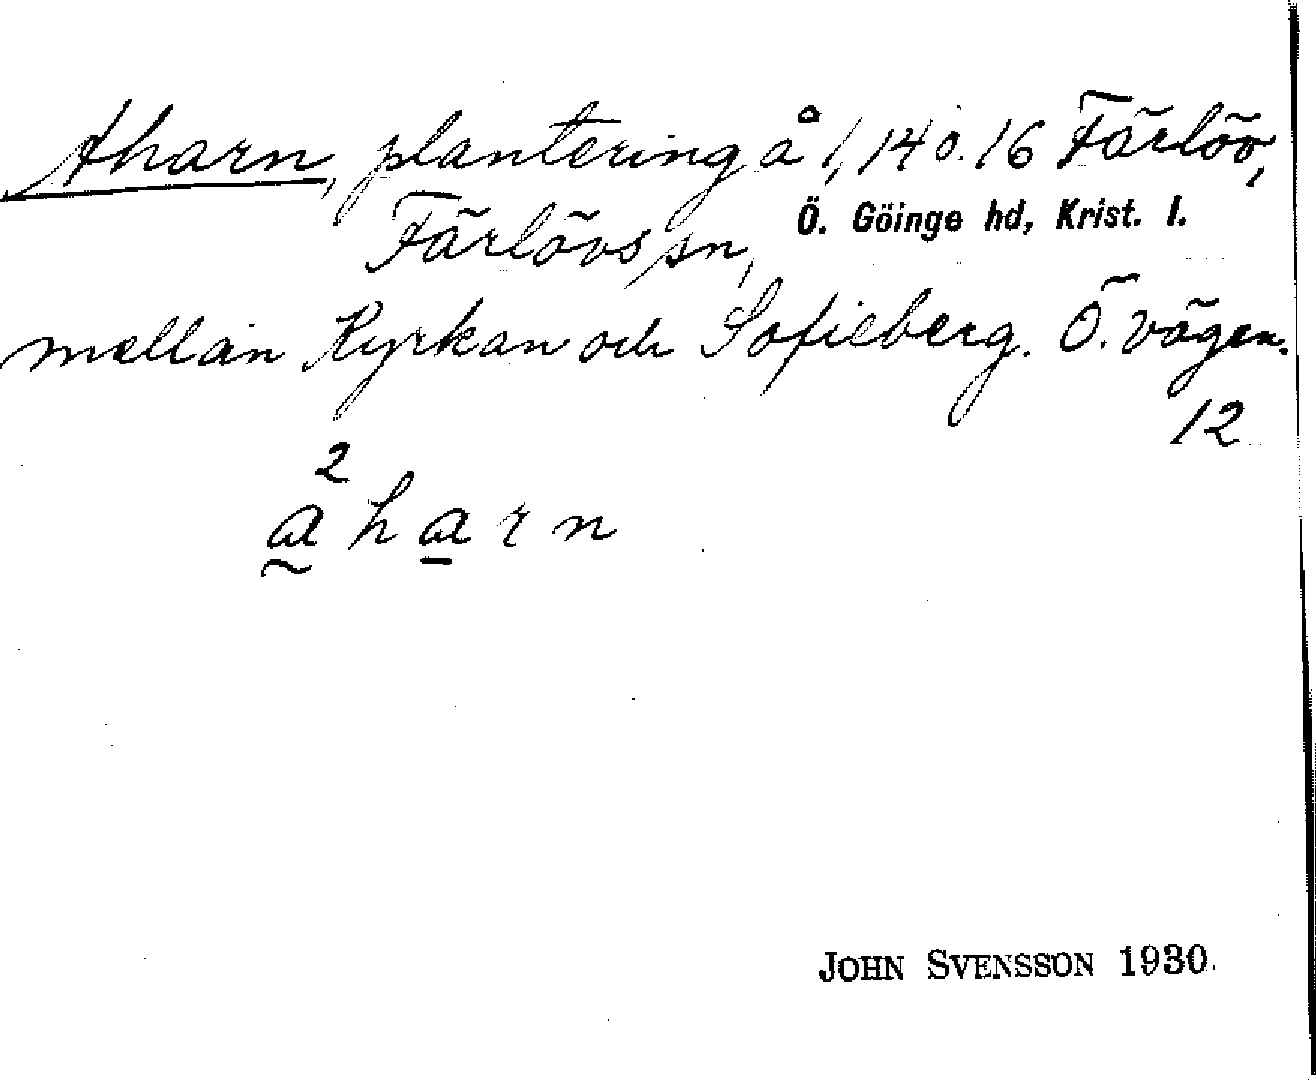 Aharn, plantering å 1, 14 o. 16 Färlöv,
Färlövs sn, Ö. Göinge hd, Krist. l.
mellan Kyrkan och Sofieberg. Ö. vägen.
12
2
a h a r n
JOHN SVENSSON 1930.